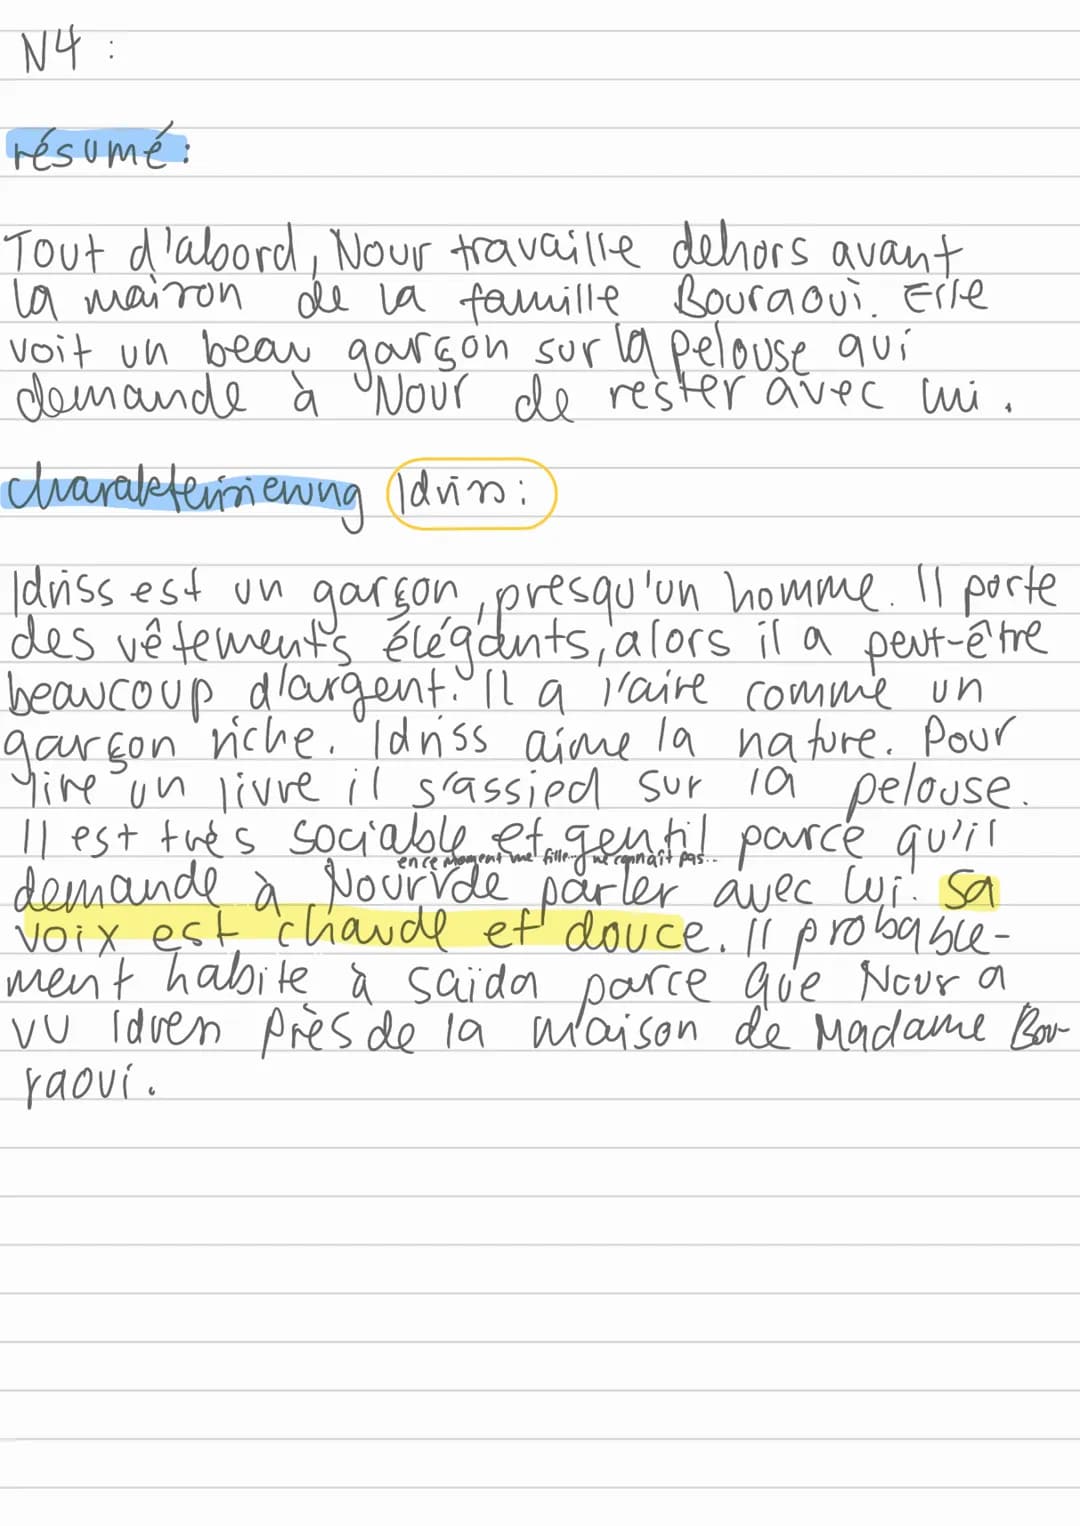 N4 :
résumé:
Tout d'abord, Nour travaille dehors avant
la maison de la famille Bouraoui. Elle
voit un beau garçon sur la pelouse qui
demande à Nour de rester avec lui.
charakterisierung Idriss:
Idriss est un garçon, presqu'un homme. Il porte
des vêtements élégants, alors il a peut-être
beaucoup d'argent. Il a l'aire comme un
garçon riche. Idriss aime la nature. Pour
lire un livre il s'assied sur la pelouse.
Il est très sociable et gentil parce qu'il
en ce moment une fille... ne connaît pas..
demande à Nour de parler avec lui. Sa
voix est chaude et douce. Il probable-
ment habite à Saïda parce que Nour a
vu près de la maison de Madame Bou-
raoui.